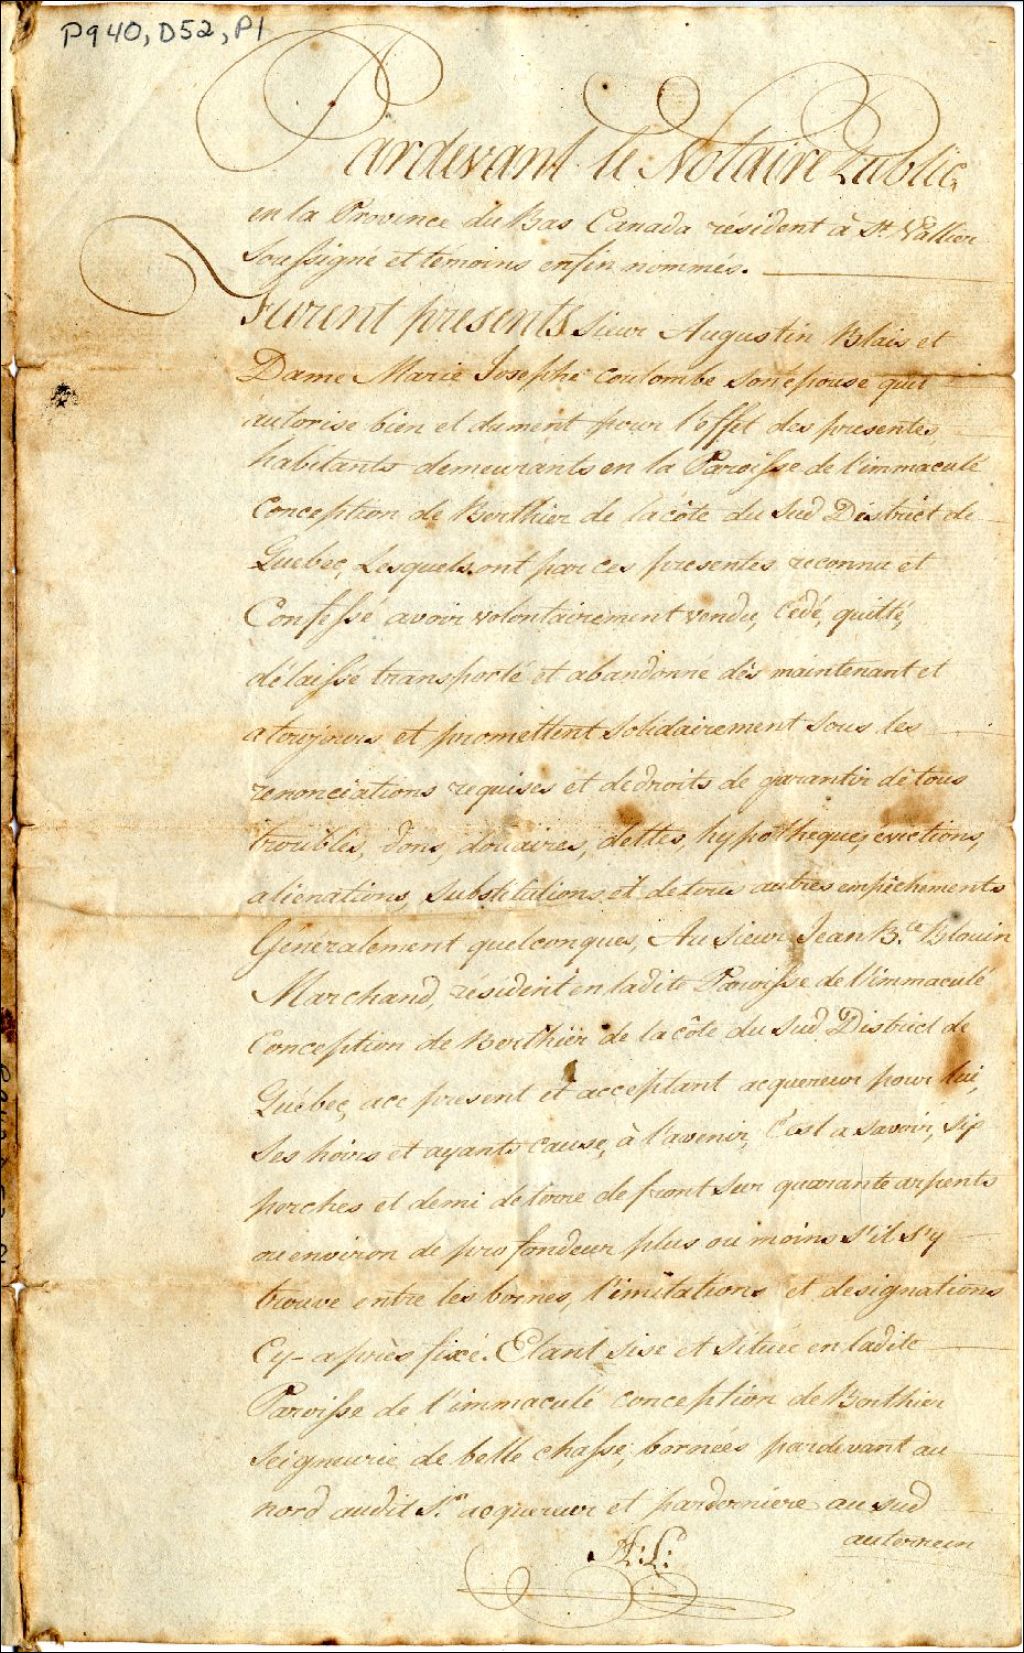 P940, D52, P1
Pardevant le Notaire Public,
en la Province du Bas Canada résident à St. Vallier
Soussigné et témoins enfin nommés.
Furent presents Sieur Augustin Blais et
Dame Marie Josephe Coulombe son épouse quil
autorise bien et dument pour l'effet des presentes
habitants demeurants en la Paroisse de l'immaculé
Conception de Berthier de la côte du Sud District de
Quebec, Lesquels ont par ces presentes reconnu et
Confessé avoir volontairement vendu, cedé, quitté,
délaissé transporté et abandonné dès maintenant et
a toujours et promettent Solidairement sous les
renonciations requises et de droits de garantir de tous
troubles, dons, douaires, dettes, hypotheques, evictions,
alienations, substitutions et de tous autres empêchements
Généralement quelconques, Au Sieur Jean B.te Blouin
Marchand, résident en ladite Paroisse de l'immaculé
Conception de Berthier de la côte du Sud District de
Québec, ace present et acceptant acquereur pour lui,
Ses hoirs et ayants cause, à l'avenir, C'est a savoir, Six
perches et demi de terre de front sur quarante arpents
ou environ de profondeur plus ou moins s'il s'y
trouve entre les bornes, l'imitations et designations
Cy-après fixé. Etant sise et située en ladite
Paroisse de l'immaculé conception de Berthier
Seigneurie de belle chasse, bornées pardevant au
nord audit S.r acquereur et parderniere au sud
au terrein